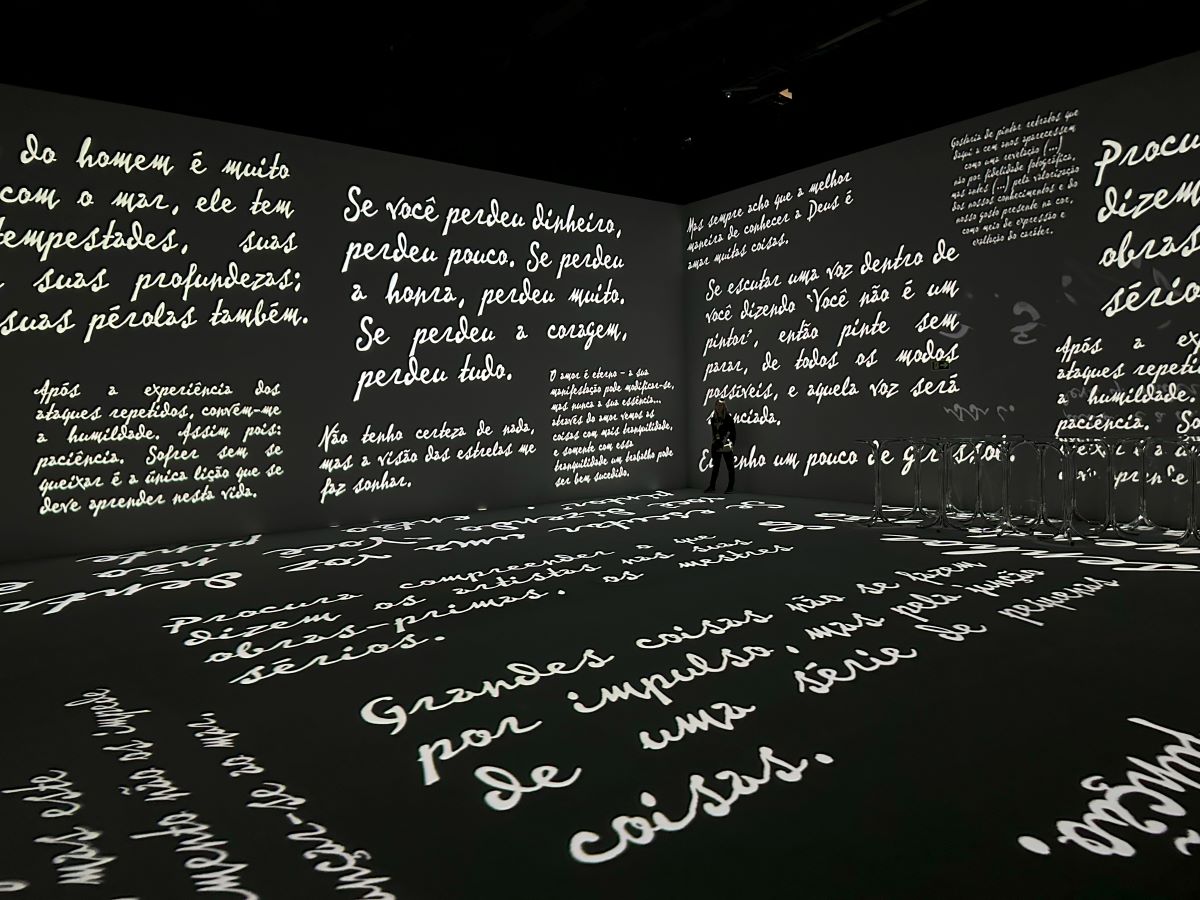 do homem é muito
com o mar, ele tem
tempestades, suas
suas profundezas;
suas pérolas também.
Após a experiência dos
ataques repetidos, convém-me
a humildade. Assim pois:
paciência. Sofrer sem se
queixar é a única lição que se
deve aprender nesta vida.
Se você perdeu dinheiro,
perdeu pouco. Se perdeu
a honra, perdeu muito.
Se perdeu a coragem,
perdeu tudo.
Não tenho certeza de nada,
mas a visão das estrelas me
faz sonhar.
O amor é eterno - a sua
manifestação pode modificar-se,
mas nunca a sua essência...
através do amor vemos as
coisas com mais tranquilidade,
e somente com essa
tranquilidade um trabalho pode
ser bem sucedido.
Mas sempre acho que a melhor
maneira de conhecer a Deus é
amar muitas coisas.
Se escutar uma voz dentro de
você dizendo 'Você não é um
pintor', então pinte sem
parar, de todos os modos
possíveis, e aquela voz será
Gostaria de pintar retratos que
daqui a cem anos aparecessem
como uma revelação (...)
não por fidelidade fotográfica,
mas antes (...) pela valorização
dos nossos conhecimentos e do
nosso gosto presente na cor,
como meio de expressão e
exaltação do caráter.
Procu
dizem
obras
sério
Após a ex
ataques repetidos
a humildade.
paciência. So
um pouco de
Procura compreender o que
dizem os artistas nas suas
obras-primas, os mestres
sérios.
Grandes coisas não se fazem
por impulso, mas pela junção
de uma série de pequenas
coisas.